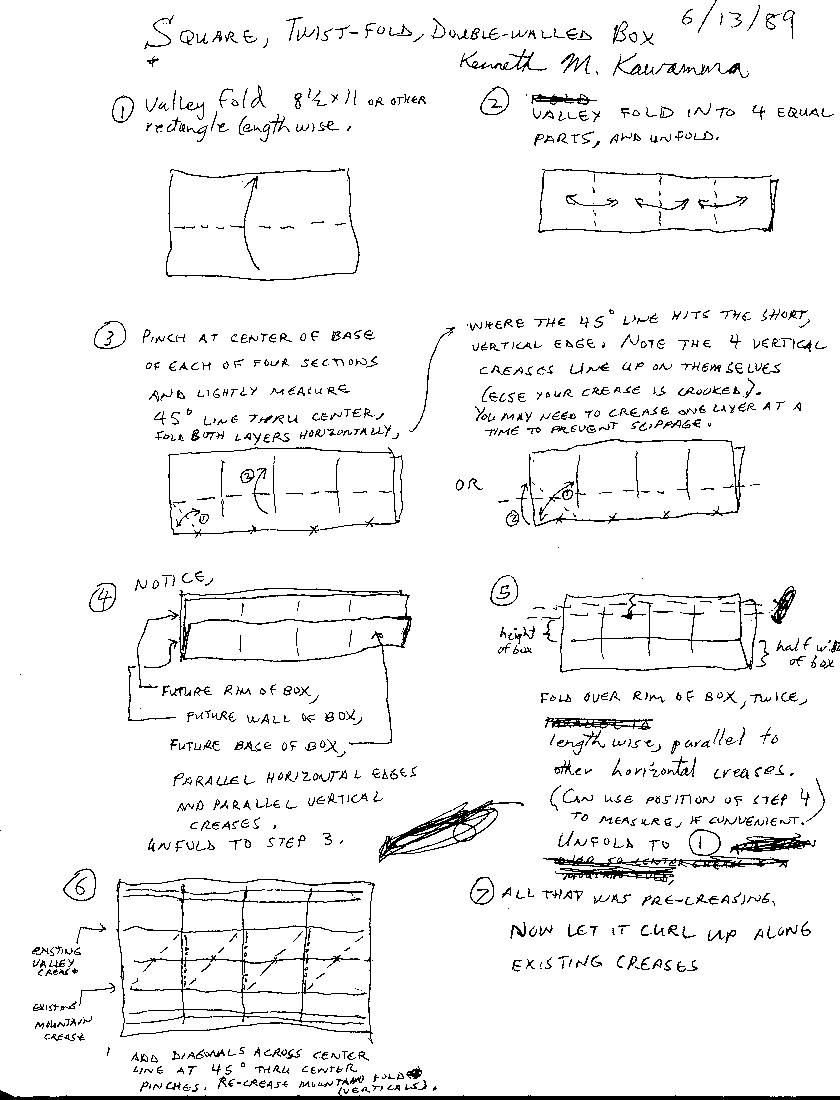 SQUARE, TWIST-FOLD, DOUBLE-WALLED BOX 6/13/89
Kenneth M. Kawamura
① Valley fold 8½ x 11 OR OTHER
rectangle lengthwise.
② VALLEY FOLD INTO 4 EQUAL
PARTS, AND UNFOLD.
③ PINCH AT CENTER OF BASE
OF EACH OF FOUR SECTIONS
AND LIGHTLY MEASURE
45° LINE THRU CENTER,
FOLD BOTH LAYERS HORIZONTALLY,
WHERE THE 45° LINE HITS THE SHORT,
VERTICAL EDGE. NOTE THE 4 VERTICAL
CREASES LINE UP ON THEMSELVES
(ELSE YOUR CREASE IS CROOKED).
YOU MAY NEED TO CREASE ONE LAYER AT A
TIME TO PREVENT SLIPPAGE.
① ②
OR
① ②
④ NOTICE,
FUTURE RIM OF BOX,
FUTURE WALL OF BOX,
FUTURE BASE OF BOX,
PARALLEL HORIZONTAL EDGES
AND PARALLEL VERTICAL
CREASES.
UNFOLD TO STEP 3.
⑤
height
of box
half width
of box
FOLD OVER RIM OF BOX, TWICE,
lengthwise, parallel to
other horizontal creases.
(CAN USE POSITION OF STEP 4)
TO MEASURE, IF CONVENIENT.
UNFOLD TO ①
⑥
EXISTING
VALLEY
CREASE
EXISTING
MOUNTAIN
CREASE
ADD DIAGONALS ACROSS CENTER
LINE AT 45° THRU CENTER
PINCHES. RE-CREASE MOUNTAIN FOLD
(VERTICALS).
⑦ ALL THAT WAS PRE-CREASING.
NOW LET IT CURL UP ALONG
EXISTING CREASES